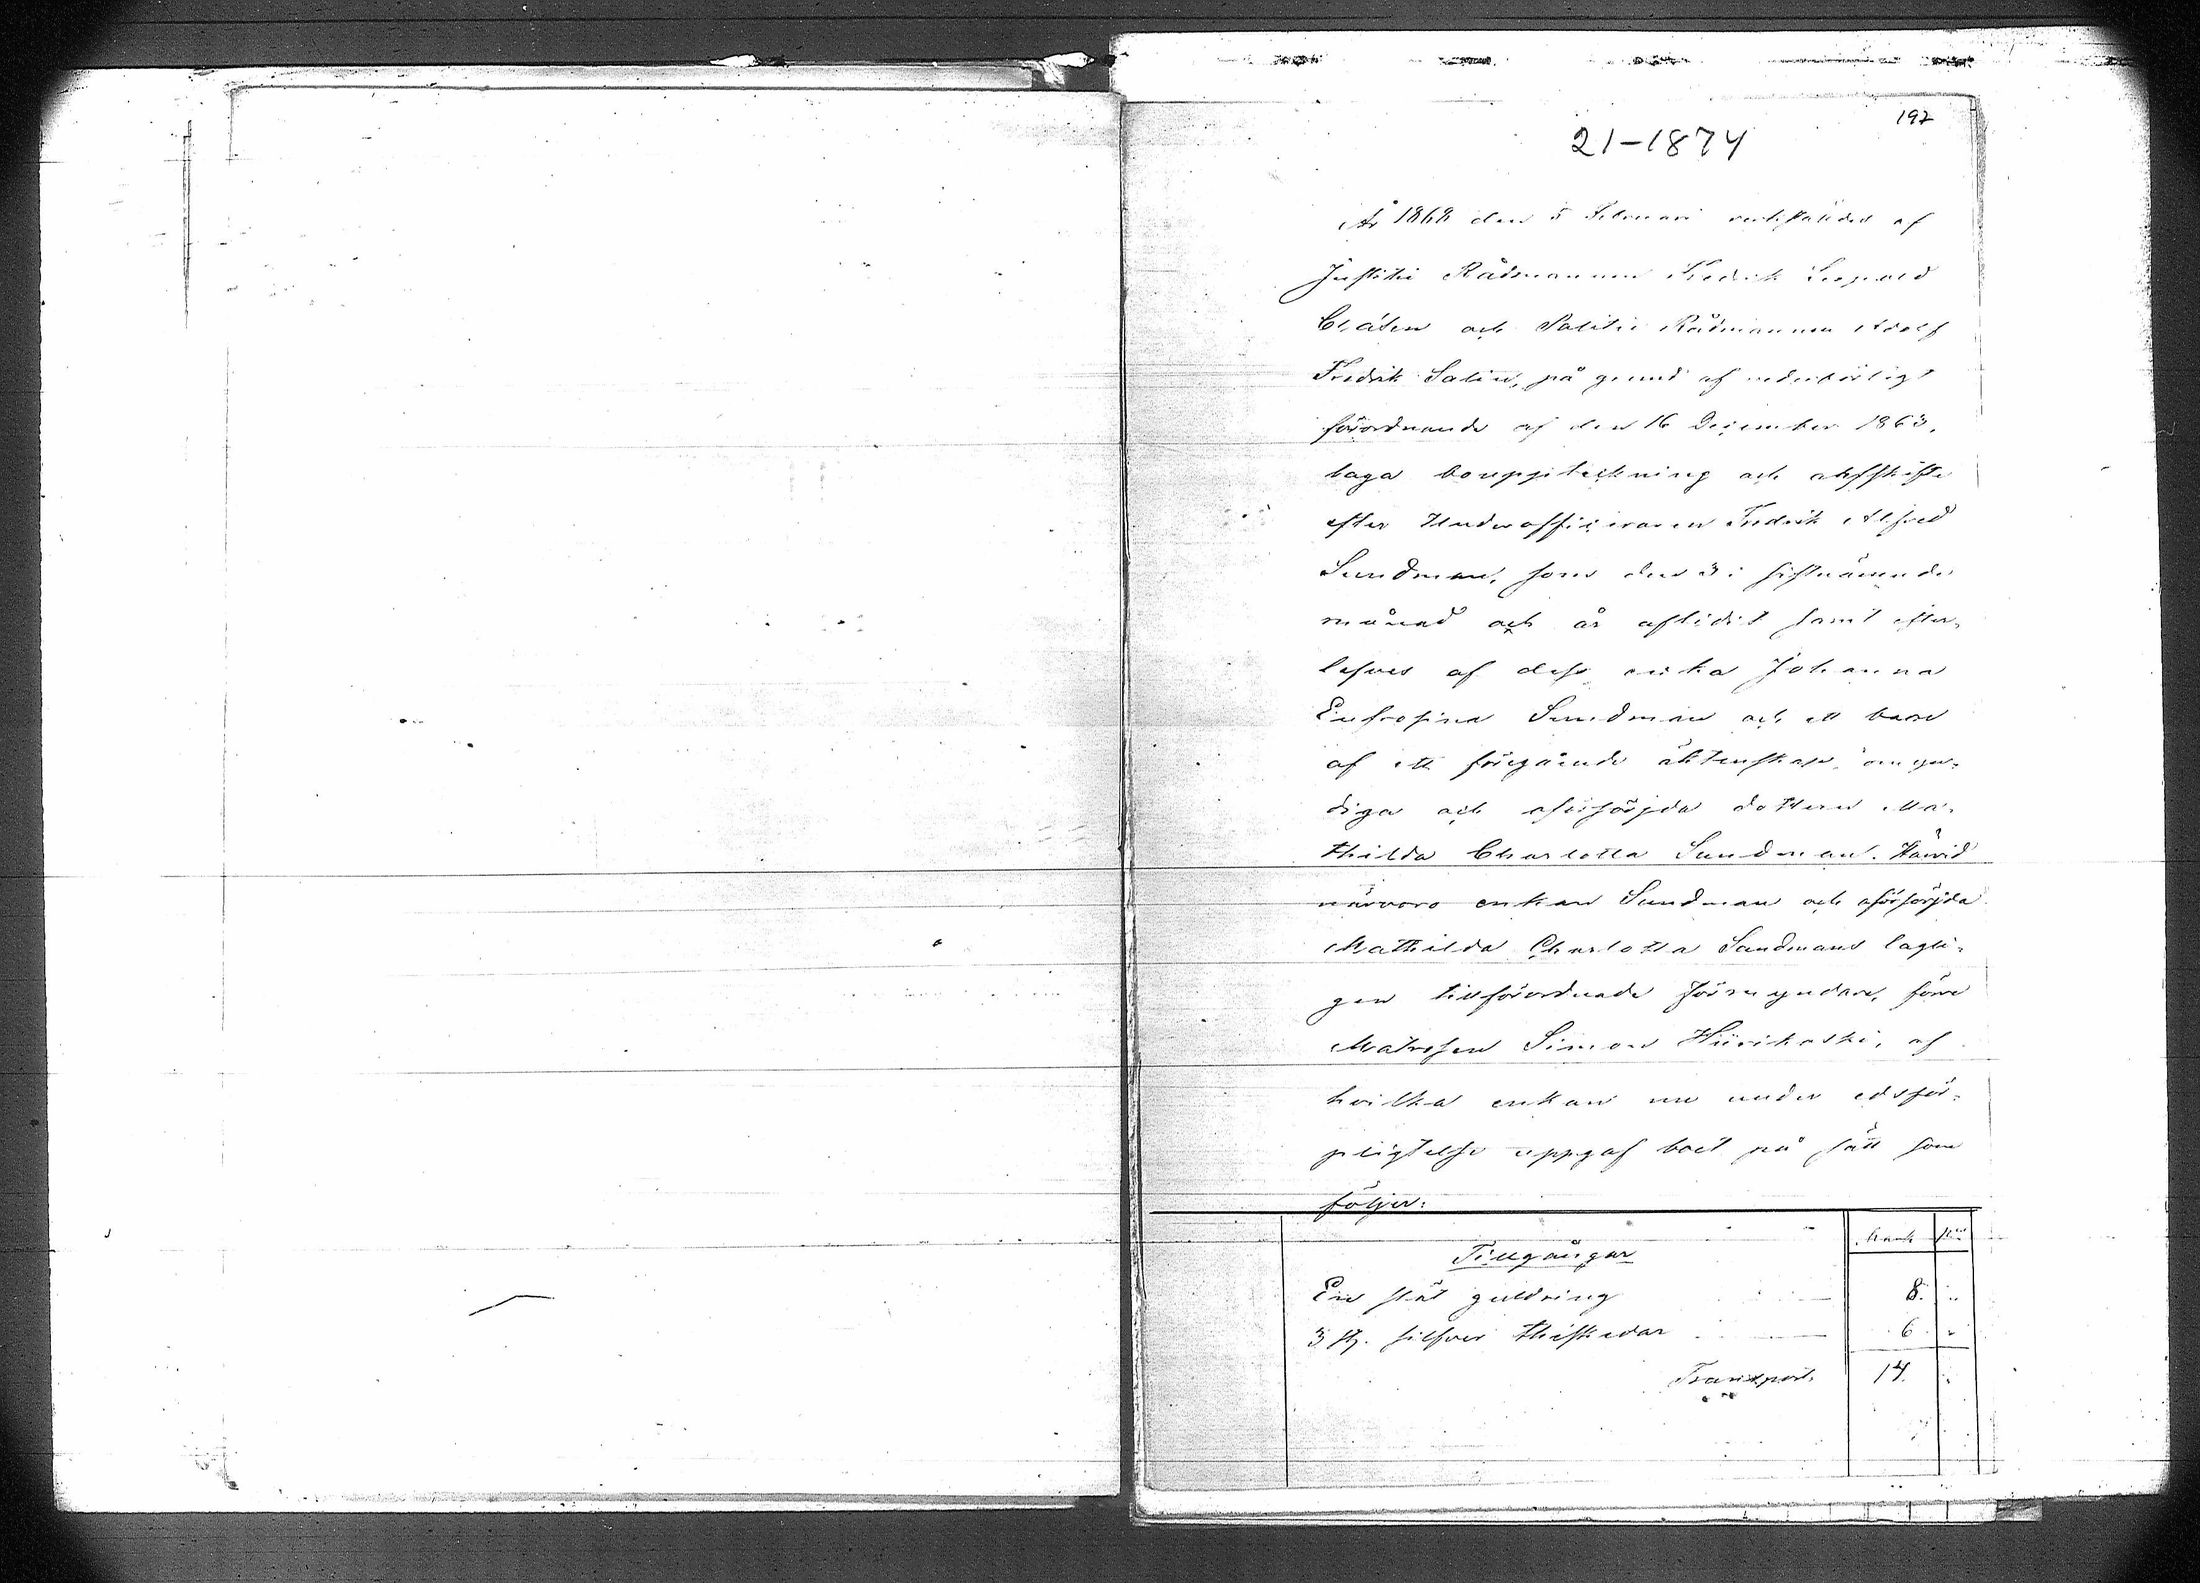 192
21-1874
År 1868 den 5 Februari verkställdes af
Justitie Rådmannen Fredrik Leopold
och Politie Rådmannen Adolf
Fredrik Salin, på grund af vederbörligt
förordnande af den 16 December 1863,
laga bouppteckning och arfskifte
efter Underofficeraren Fredrik Alfred
Sundman, som den 3 i sistnämnde
månad och år aflidit samt efter-
lefves af dess enka Johanna
Eufrosina Sundman och ett barn
af ett föregående äktenskap, omyn-
diga och oförsörjda dottern Ma-
thilda Charlotta Sundman. Härvid
närvoro enkan Sundman och oförsörjda
Mathilda Charlotta Sundmans lagli-
gen tillförordnade förmyndare, förre
Matrosen Simon Hiirikoski, af
hvilka enkan nu under edsför-
pligtelse uppgaf boet på sätt som
följer:
Tillgångar
Mark
En slät guldring 8. "
3 st. silfver théskedar 6 "
Transport. 14. "